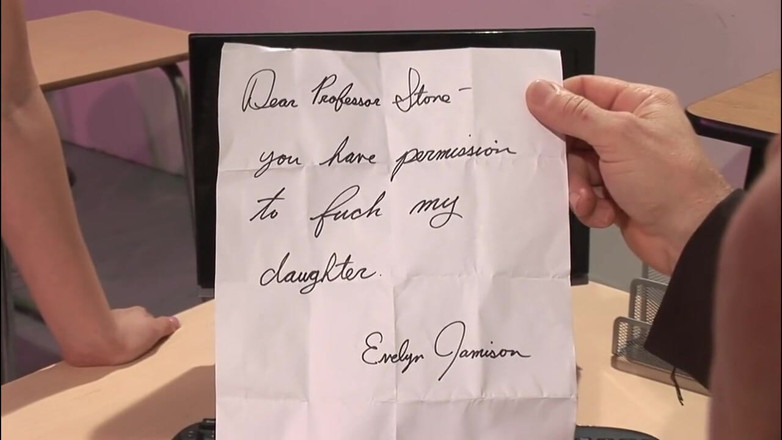 Dear Professor Stone -
you have permission
to fuck my
daughter.
Evelyn Jamison